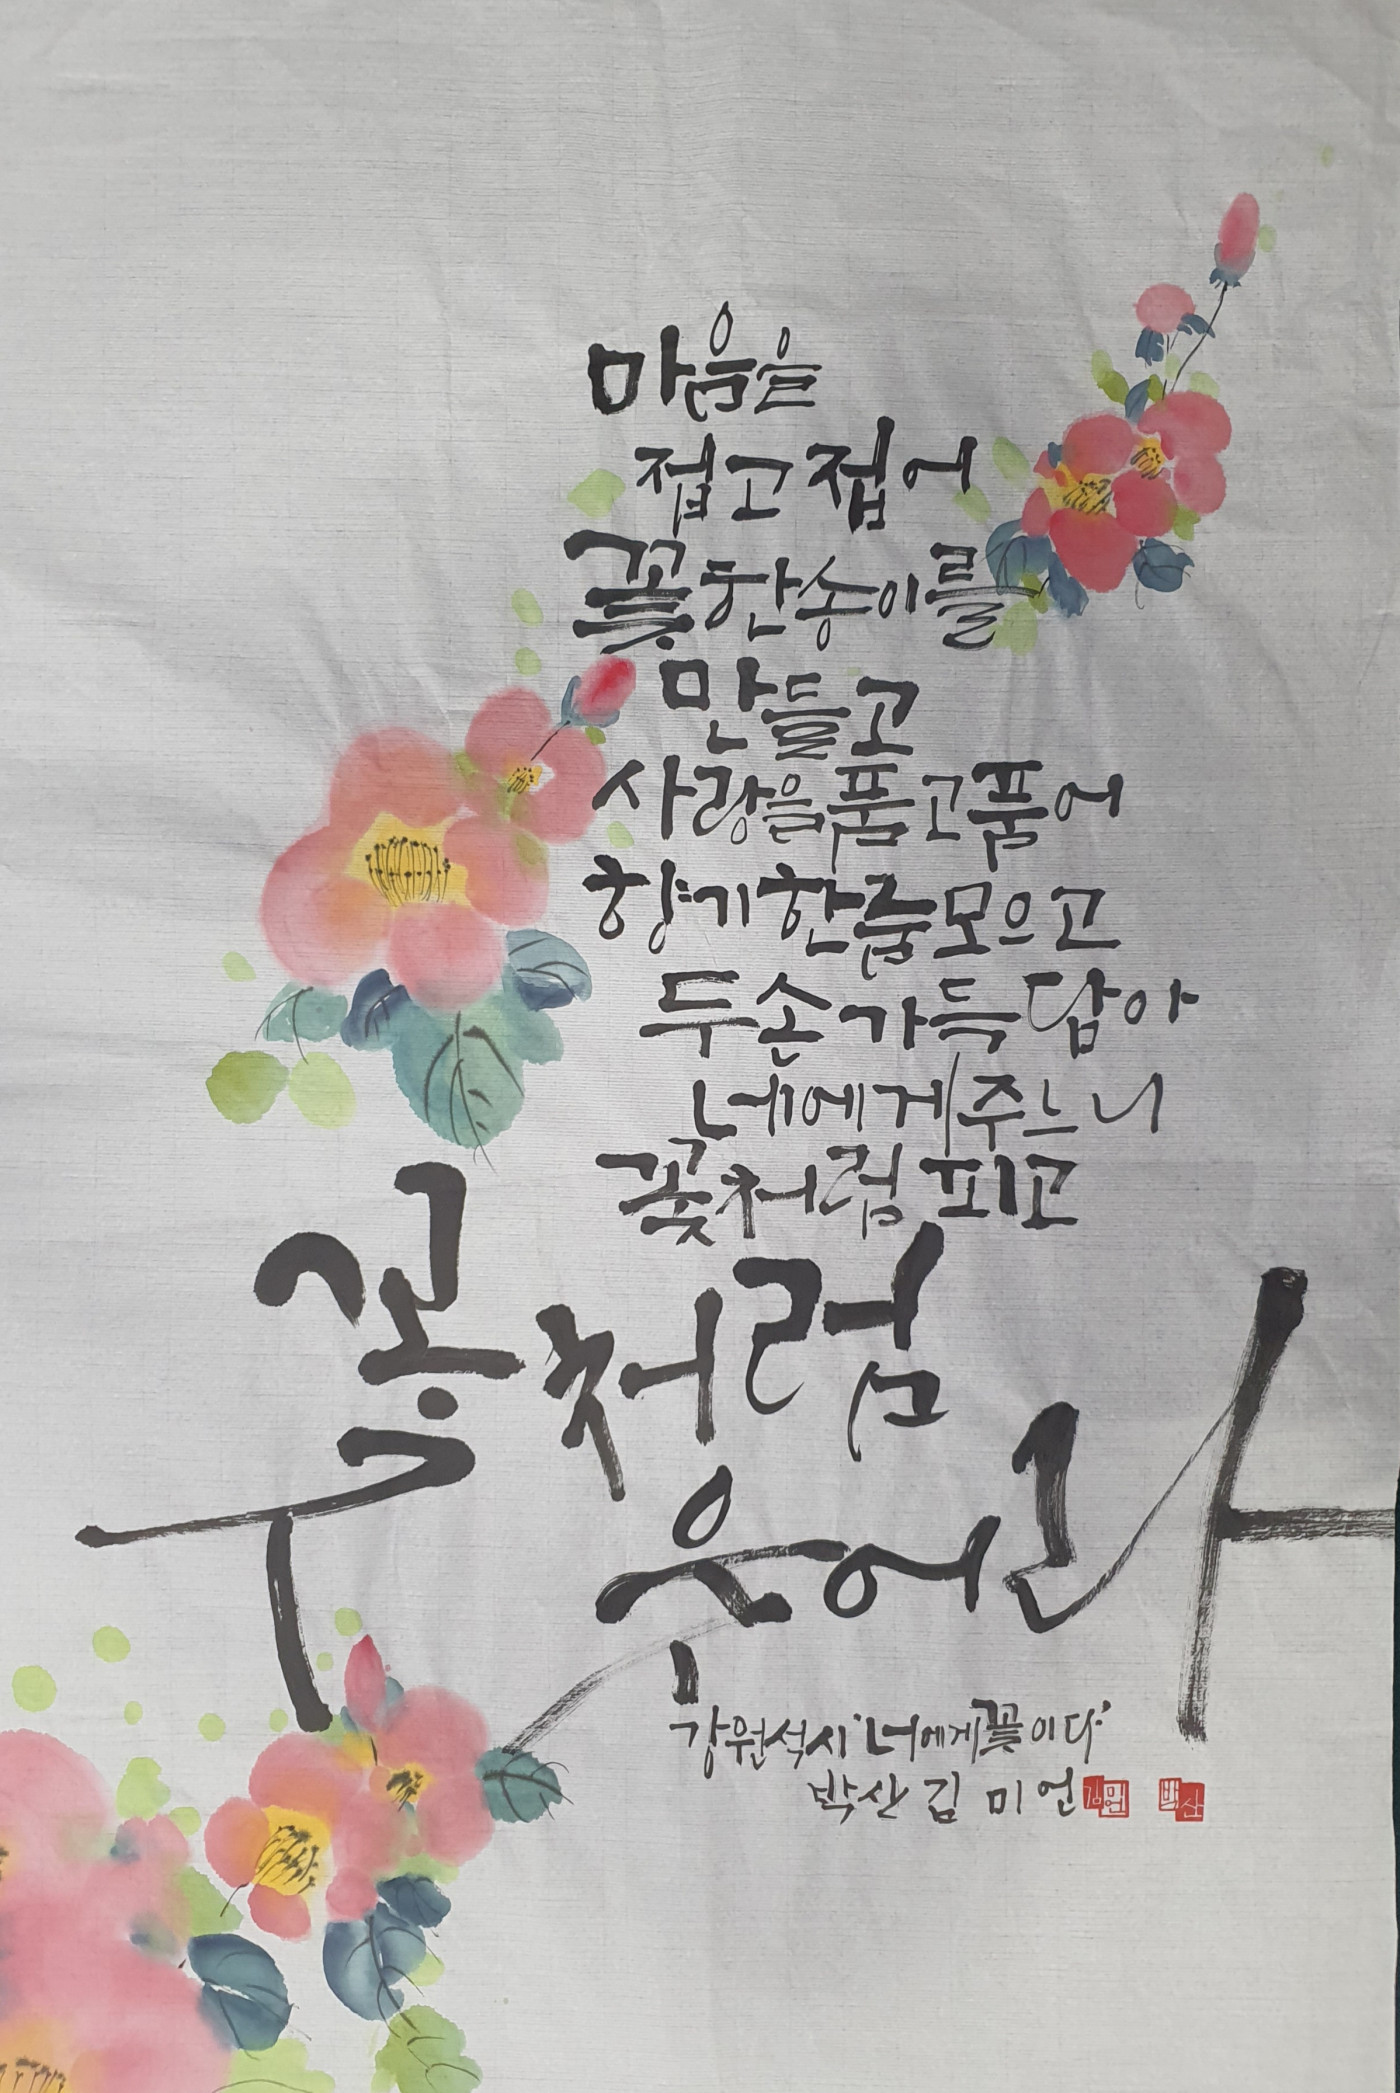 마음을
접고 접어
꽃 한 송이를
만들고
사랑을 품고 품어
향기 한 줌 모으고
두 손 가득 담아
네에게 주느니
꽃처럼 피고
꽃처럼
웃어라
강원석 시 '너에게 꽃이다'
박산 김미언
김미언
박산